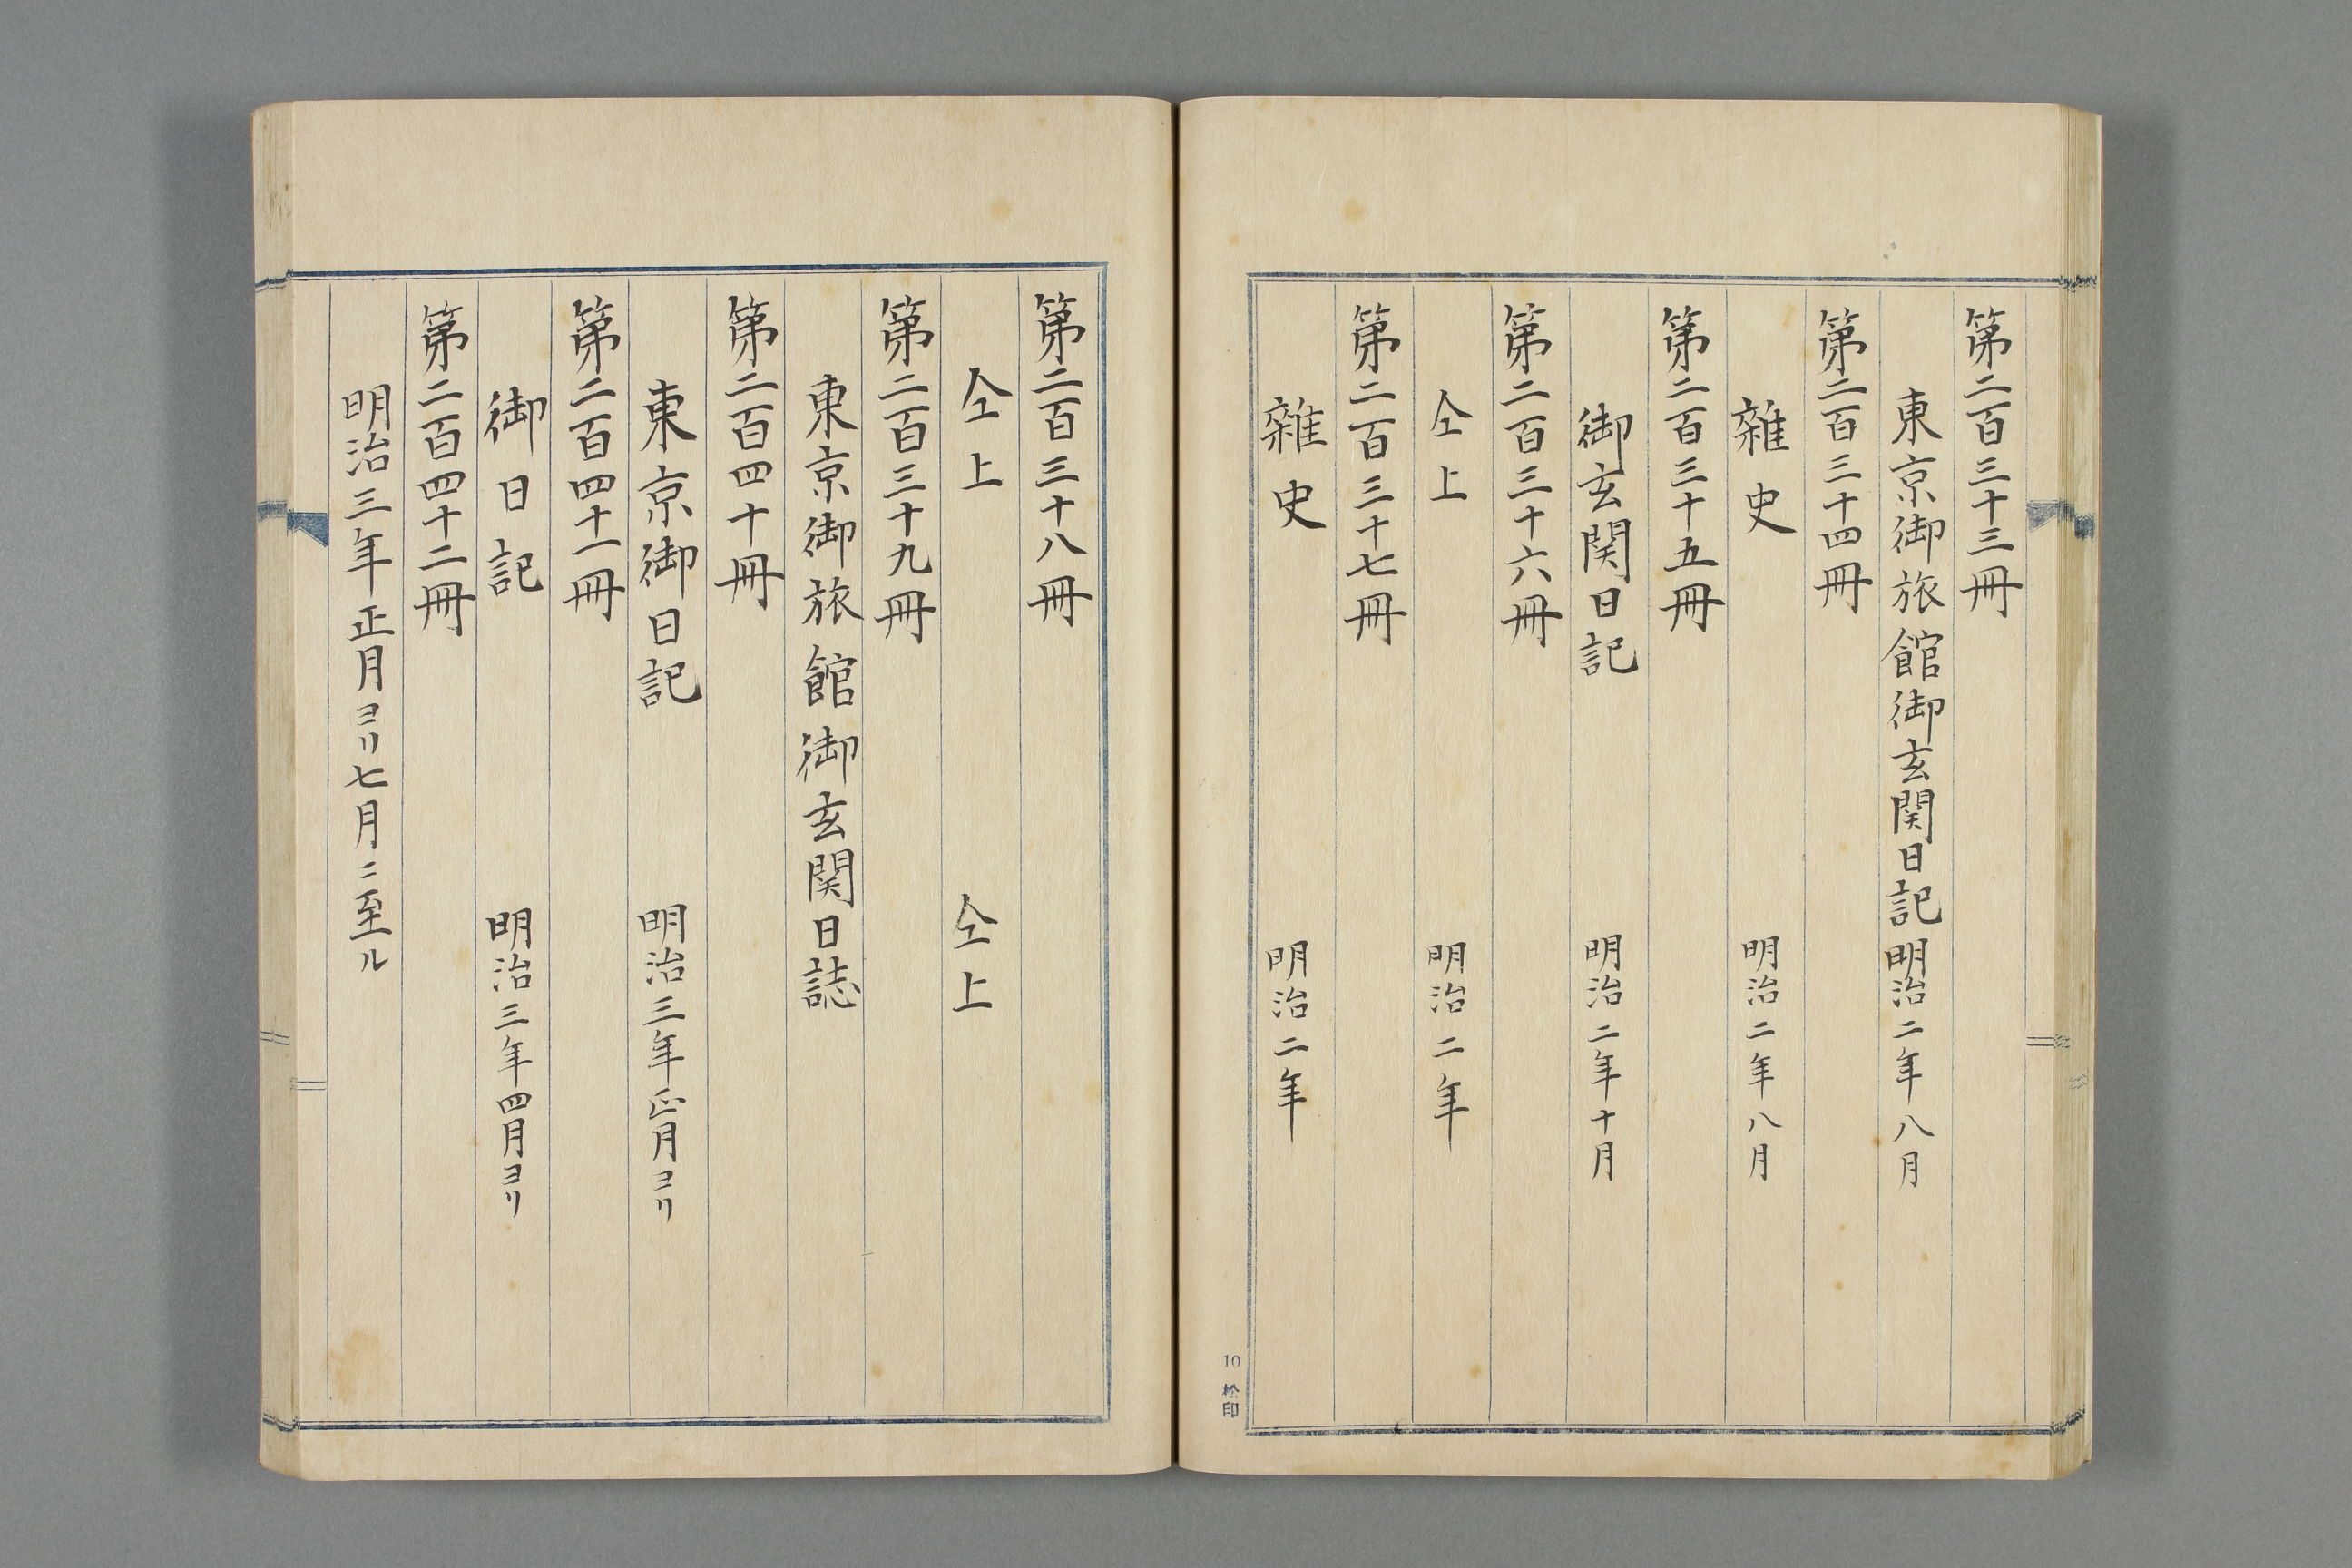 第二百三十三冊
東京御旅館御玄関日記 明治二年八月
第二百三十四冊
雑史 明治二年八月
第二百三十五冊
御玄関日記 明治二年十月
第二百三十六冊
仝上 明治二年
第二百三十七冊
雑史 明治二年
10
第二百三十八冊
仝上 仝上
第二百三十九冊
東京御旅館御玄関日誌
第二百四十冊
東京御日記 明治三年正月ヨリ
第二百四十一冊
御日記 明治三年四月ヨリ
第二百四十二冊
明治三年正月ヨリ七月ニ至ル